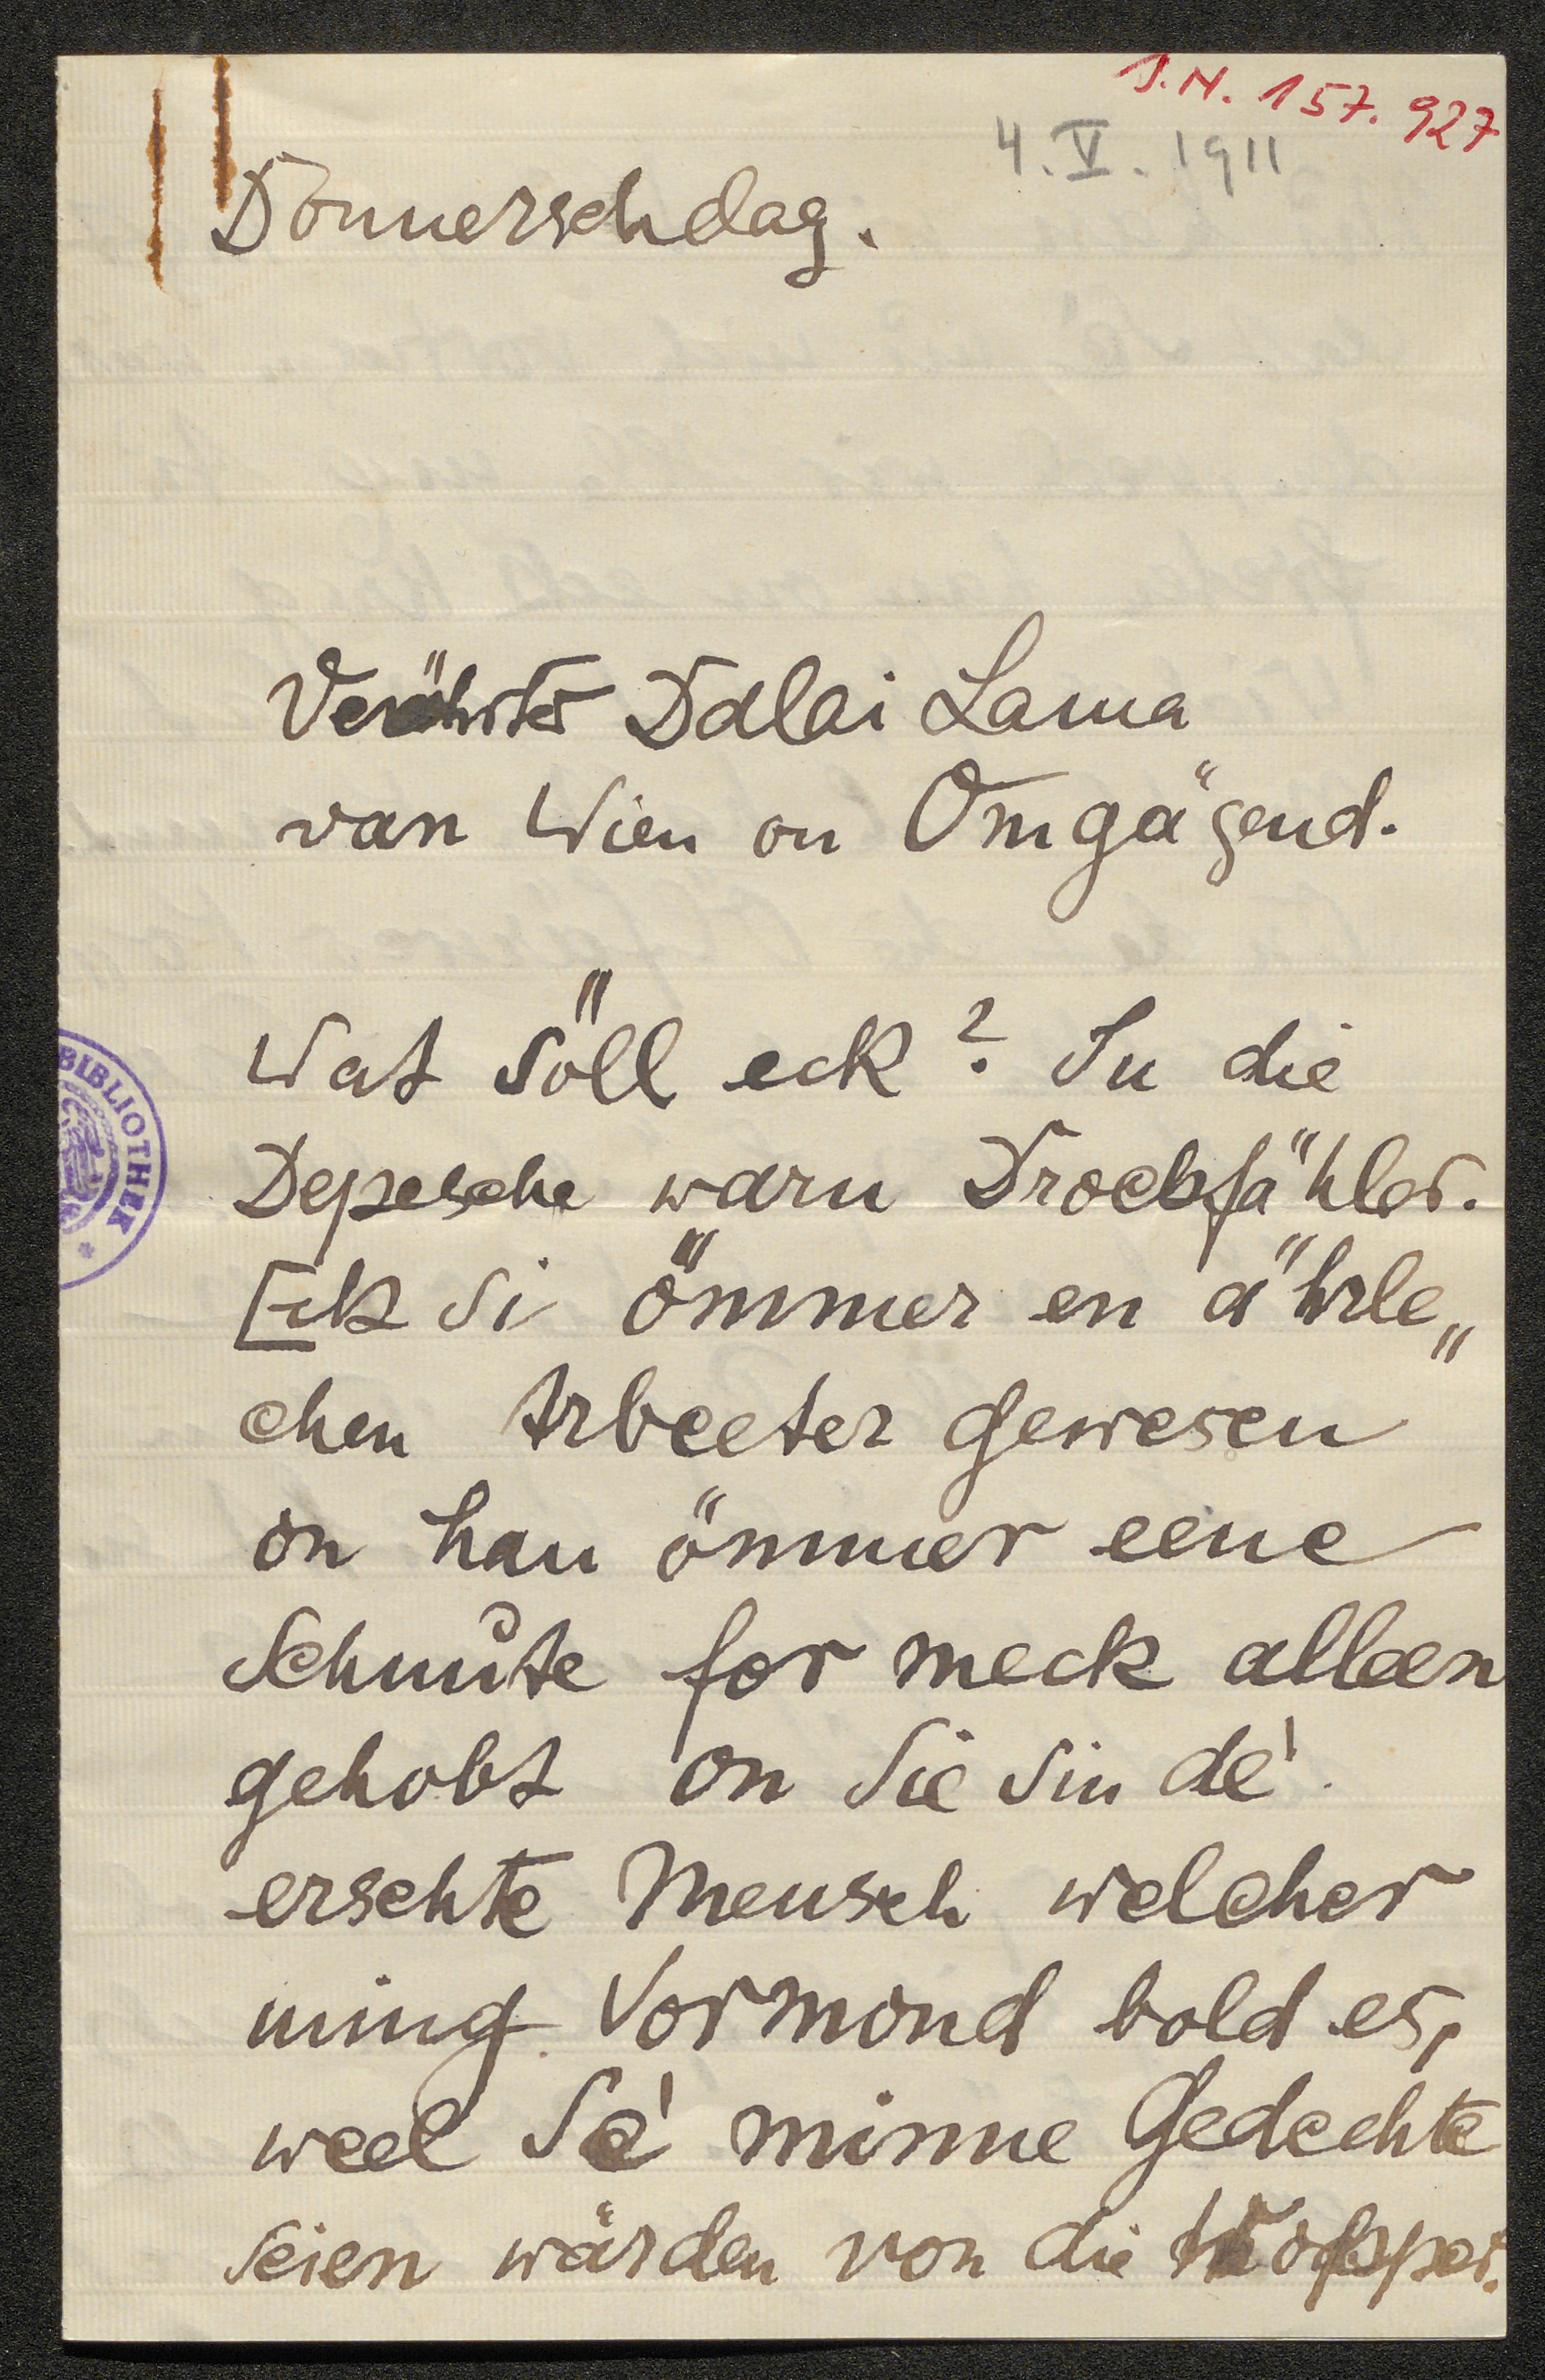 I.N. 157.927
4. V. 1911
Donnerschdag.
Verährter Dalai Lama
van Wien on Omgägend.
Wat söll eck? In die
Depesche warn Drockfähler.
Eck si ömmer en ährle„
chen Arbeeter gewesen
on han ömmer eene
Schnute for meck alleen
gehobt on Sie sin dé
erschte Mensch welcher
ming Vormond bold es,
weel Sé minne Gedechte
seien wärden von die
BIBLIOTHEK